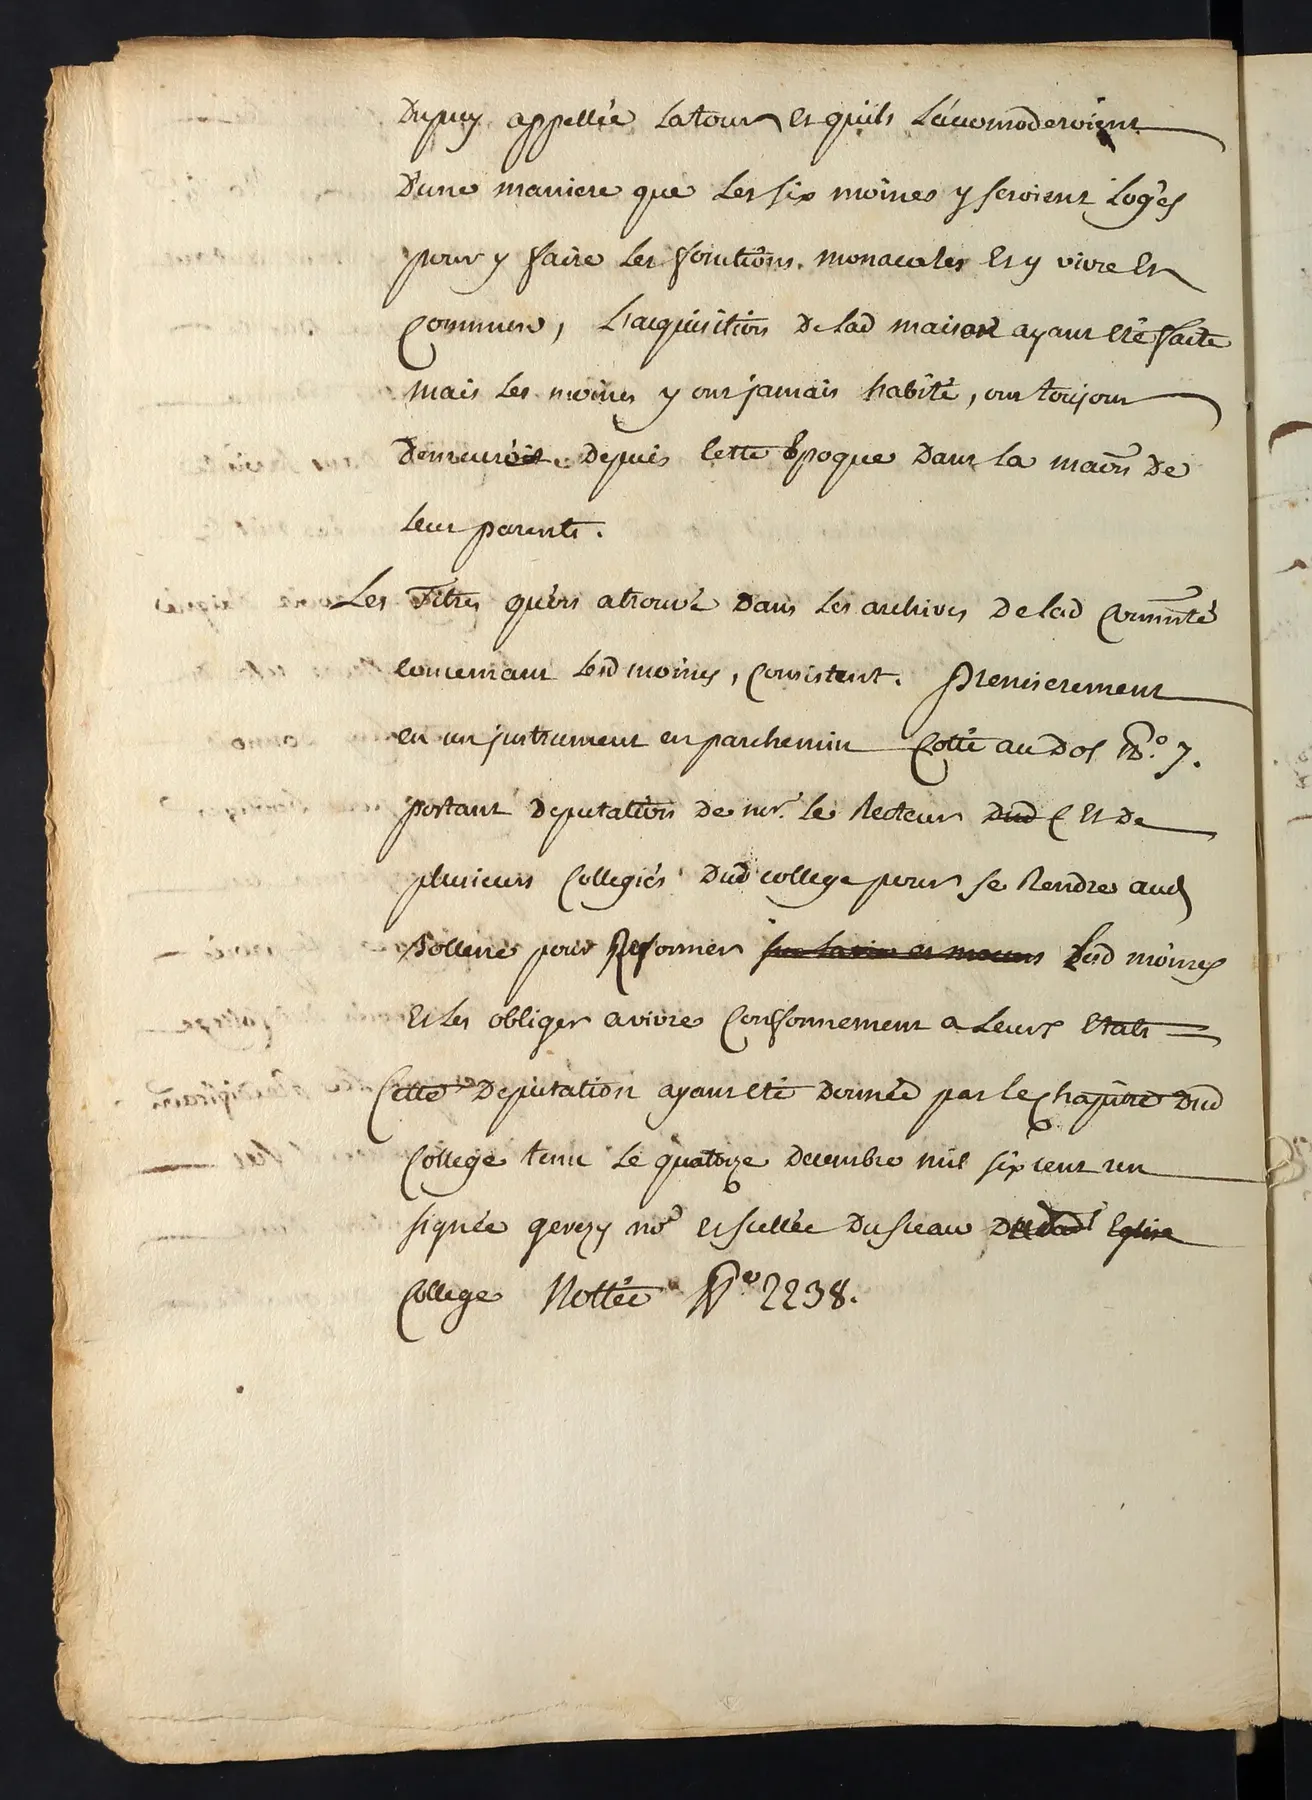 Dupuy appellée Latour et quils L'acomoderoient
D'une maniere que Les six moines y seroient Logés
pour y faire Les fonctions monacales Et y vivre En
Commun, L'acquisition De lad maison ayant été faite
mais Les moines y ont jamais habité, ont toujour
Demeuré Depuis Cette Epoque Dans La maison De
Leur parents.
Les Titres qu'on atrouvé Dans Les archives De lad Commté
Concernant Lesd moines, Consistent. Premierement
en un justrument en parchemin Cotté au Dos No. 7.
portant Deputation De mr. Le Recteur Dud C Et De
plusieurs Collegiés Dud college pour se Rendre aud
Sollene pour Reformer sur la vie et moeurs Lesd moines
Et Les obliger a vivre Conformement a Leurs Etats
Cette Deputation ayant été Donnée par le Chapitre Dud
College tenu Le quatorze Decembre mil six cent un
signée gerezy nore et scellée Du sceau Eglise
College Nottée No 2238.